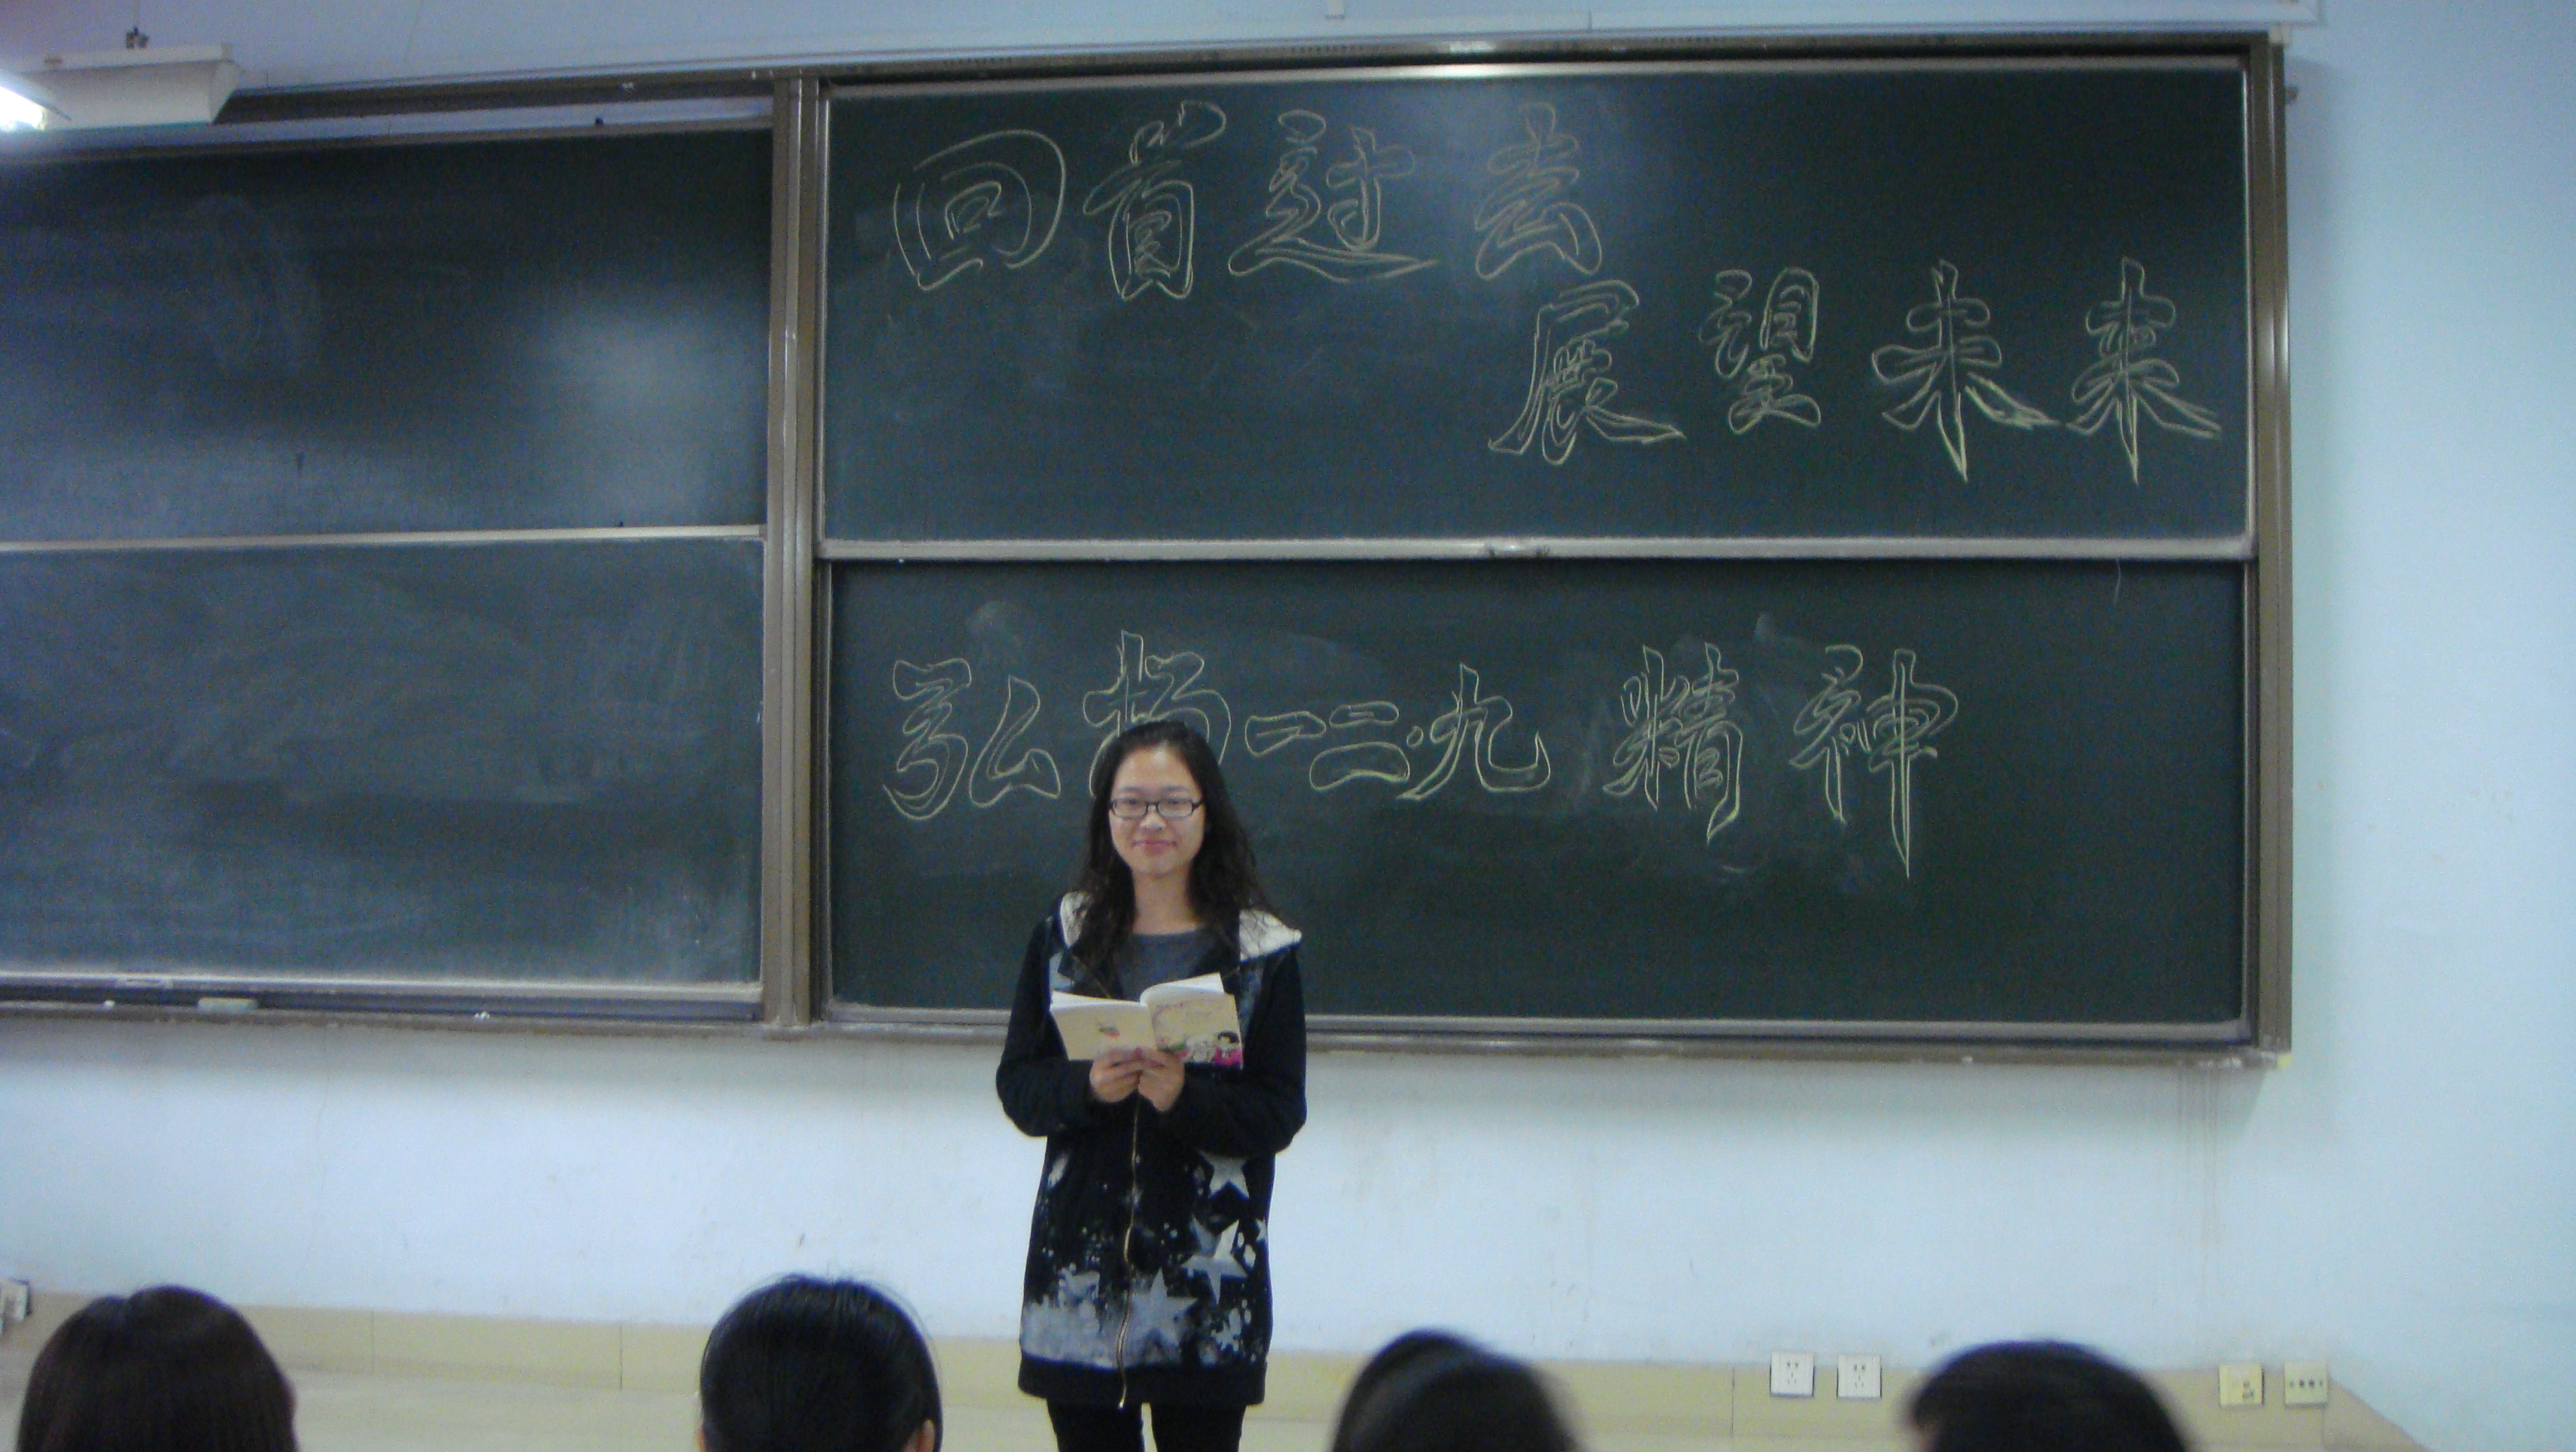 回首过去
展望未来
弘扬一二·九精神